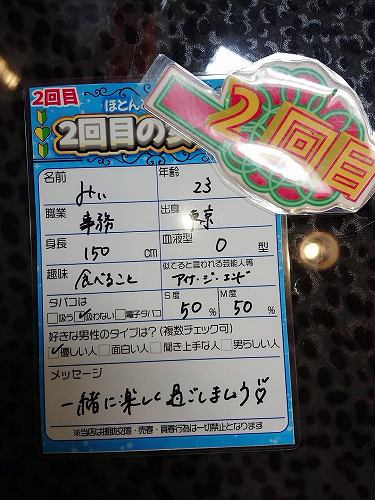 2回目
ほとん
2回目の
2回目
名前 みぃ 年齢 23
職業 事務 出身 東京
身長 150 cm 血液型 O 型
趣味 食べること 似てると言われる芸能人等 アイナ・ジ・エンド
タバコは S度 M度
□吸う☑吸わない□電子タバコ 50% 50%
好きな男性のタイプは?(複数チェック可)
☑優しい人□面白い人□聞き上手な人□男らしい人
メッセージ
一緒に楽しく過ごしましょう♡
※当店は援助交際・売春・買春行為は一切禁止となります